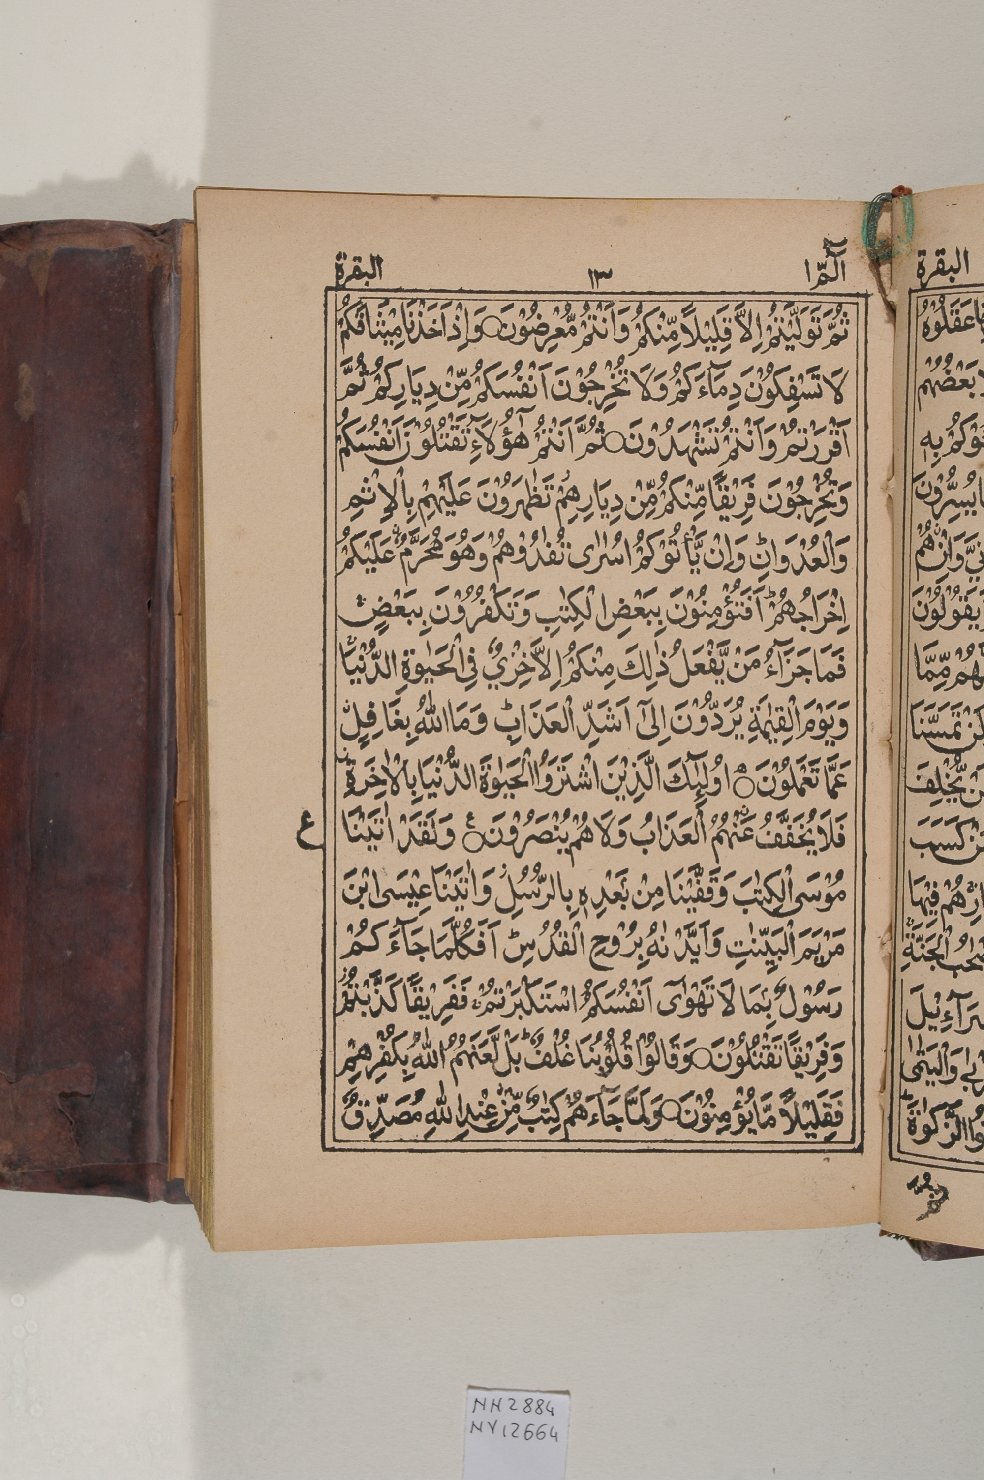 الٓمّٓ ١
١٣
البقرة
ثُمَّ تَوَلَّيْتُمْ اِلَّا قَلِيْلًا مِّنْكُمْ وَاَنْتُمْ مُّعْرِضُوْنَ ۝ وَاِذْ اَخَذْنَا مِيْثَاقَكُمْ
لَا تَسْفِكُوْنَ دِمَآءَكُمْ وَلَا تُخْرِجُوْنَ اَنْفُسَكُمْ مِّنْ دِيَارِكُمْ ثُمَّ
اَقْرَرْتُمْ وَاَنْتُمْ تَشْهَدُوْنَ ۝ ثُمَّ اَنْتُمْ هٰٓؤُلَآءِ تَقْتُلُوْنَ اَنْفُسَكُمْ
وَتُخْرِجُوْنَ فَرِيْقًا مِّنْكُمْ مِّنْ دِيَارِهِمْ تَظٰهَرُوْنَ عَلَيْهِمْ بِالْاِثْمِ
وَالْعُدْوَانِ ؕ وَاِنْ يَّاْتُوْكُمْ اُسٰرٰى تُفٰدُوْهُمْ وَهُوَ مُحَرَّمٌ عَلَيْكُمْ
اِخْرَاجُهُمْ ؕ اَفَتُؤْمِنُوْنَ بِبَعْضِ الْكِتٰبِ وَتَكْفُرُوْنَ بِبَعْضٍ ۚ
فَمَا جَزَآءُ مَنْ يَّفْعَلُ ذٰلِكَ مِنْكُمْ اِلَّا خِزْيٌ فِى الْحَيٰوةِ الدُّنْيَا ۚ
وَيَوْمَ الْقِيٰمَةِ يُرَدُّوْنَ اِلٰٓى اَشَدِّ الْعَذَابِ ؕ وَمَا اللّٰهُ بِغَافِلٍ
عَمَّا تَعْمَلُوْنَ ۝ اُولٰٓئِكَ الَّذِيْنَ اشْتَرَوُا الْحَيٰوةَ الدُّنْيَا بِالْاٰخِرَةِ ؗ
فَلَا يُخَفَّفُ عَنْهُمُ الْعَذَابُ وَلَا هُمْ يُنْصَرُوْنَ ۝ وَلَقَدْ اٰتَيْنَا
ع
مُوْسَى الْكِتٰبَ وَقَفَّيْنَا مِنْ بَعْدِهٖ بِالرُّسُلِ ؗ وَاٰتَيْنَا عِيْسَى ابْنَ
مَرْيَمَ الْبَيِّنٰتِ وَاَيَّدْنٰهُ بِرُوْحِ الْقُدُسِ ؕ اَفَكُلَّمَا جَآءَكُمْ
رَسُوْلٌۢ بِمَا لَا تَهْوٰٓى اَنْفُسُكُمُ اسْتَكْبَرْتُمْ ۚ فَفَرِيْقًا كَذَّبْتُمْ ؗ
وَفَرِيْقًا تَقْتُلُوْنَ ۝ وَقَالُوْا قُلُوْبُنَا غُلْفٌ ؕ بَلْ لَّعَنَهُمُ اللّٰهُ بِكُفْرِهِمْ
فَقَلِيْلًا مَّا يُؤْمِنُوْنَ ۝ وَلَمَّا جَآءَهُمْ كِتٰبٌ مِّنْ عِنْدِ اللّٰهِ مُصَدِّقٌ
البقرة
عَقَلُوْهُ
بَعْضُهُمْ
بِهٖ
يُسِرُّوْنَ
وَاِنْ هُمْ
يَقُوْلُوْنَ
مِّمَّا
تَمَسَّنَا
يُّخْلِفَ
كَسَبَ
هُمْ فِيْهَا
الْجَنَّةِ
وَالْيَتٰمٰى
الزَّكٰوةَ
NH2884
NY12664